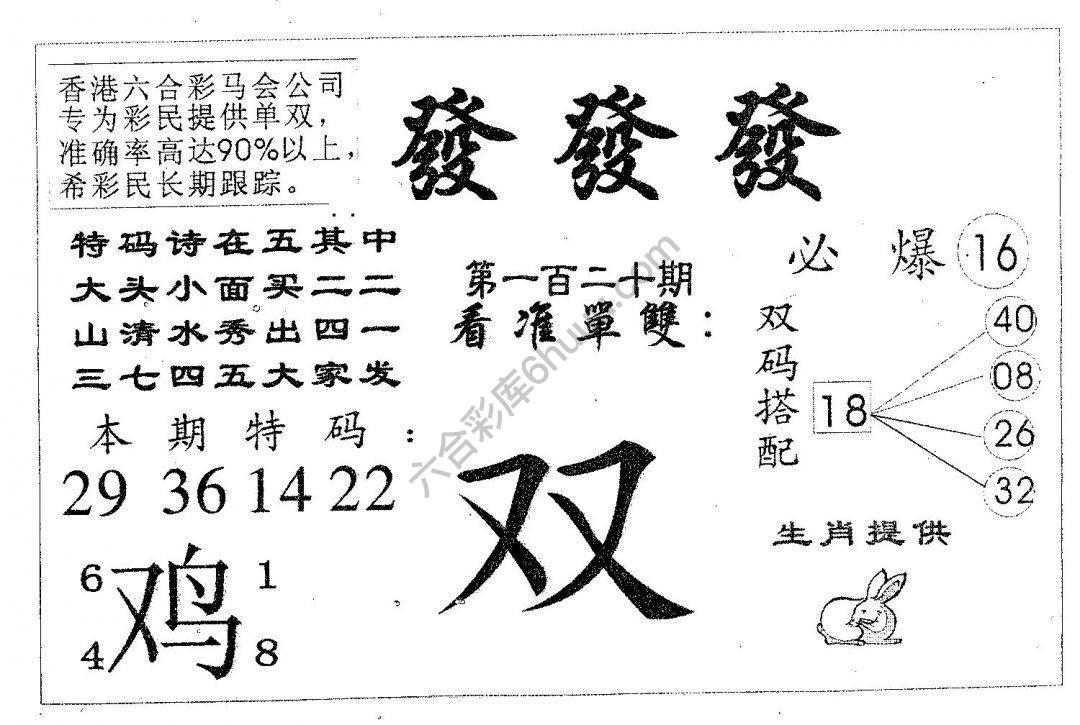 香港六合彩马会公司
专为彩民提供单双，
准确率高达90%以上，
希彩民长期跟踪。
發 發 發
特码诗在五其中
大头小面买二二
山清水秀出四一
三七四五大家发
第一百二十期
看准單雙：
必 爆 16
双码搭配
18
40
08
26
32
本期特码：
29 36 14 22
双
生肖提供
6 1
鸡
4 8
六合彩库6huu.com